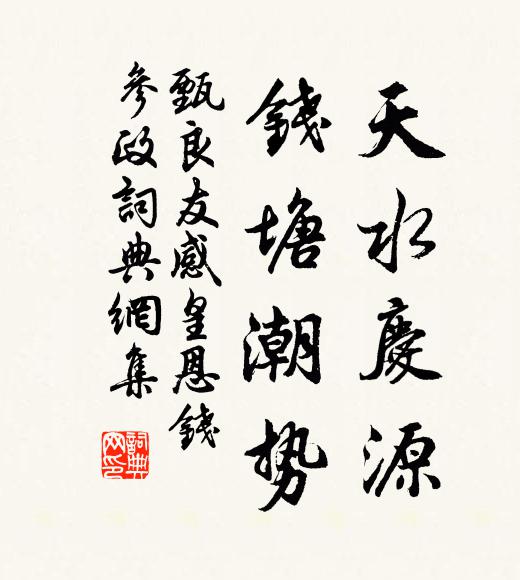 天水慶源
錢塘潮势
甄良友感皇恩錢
參政詞典網集
詞典网印